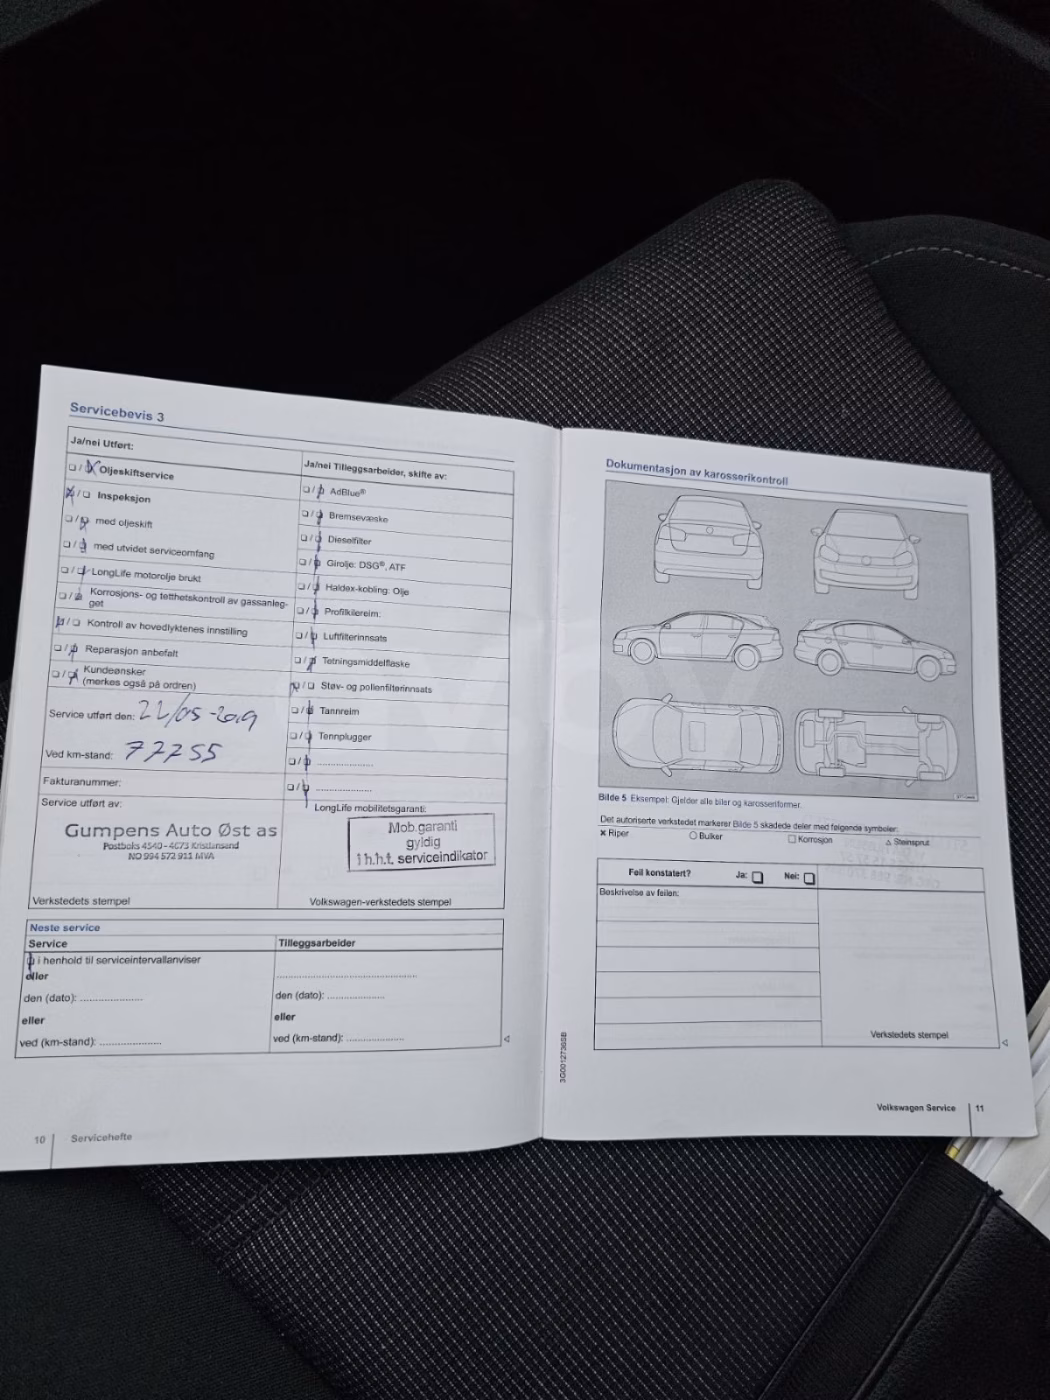 Servicebevis 3
Ja/nei Utført:
Oljeskiftservice
Inspeksjon
med oljeskift
med utvidet serviceomfang
LongLife motorolje brukt
Korrosjons- og tetthetskontroll av gassanleg-
get
Kontroll av hovedlyktenes innstilling
Reparasjon anbefalt
Kundeønsker
(merkes også på ordren)
Service utført den: 22/05-2019
Ved km-stand: 77755
Fakturanummer:
Service utført av:
Gumpens Auto Øst as
Postboks 4540 - 4673 Kristiansand
NO 994 572 911 MVA
Verkstedets stempel
Ja/nei Tilleggsarbeider, skifte av:
AdBlue®
Bremsevæske
Dieselfilter
Girolje: DSG®, ATF
Haldex-kobling: Olje
Profilkilereim:
Luftfilterinnsats
Tetningsmiddelflaske
Støv- og pollenfilterinnsats
Tannreim
Tennplugger
LongLife mobilitetsgaranti:
Mob.garanti
gyldig
i h.h.t. serviceindikator
Volkswagen-verkstedets stempel
Neste service
Service
i henhold til serviceintervallanviser
eller
den (dato): ....................
eller
ved (km-stand): ....................
Tilleggsarbeider
den (dato): ....................
eller
ved (km-stand): ....................
10 Servicehefte
Dokumentasjon av karosserikontroll
Bilde 5 Eksempel: Gjelder alle biler og karosseriformer.
Det autoriserte verkstedet markerer Bilde 5 skadede deler med følgende symboler:
x Riper
Bulker
Korrosjon
Steinsprut
Feil konstatert? Ja: Nei:
Beskrivelse av feilen:
Verkstedets stempel
3G0012736SB
Volkswagen Service 11